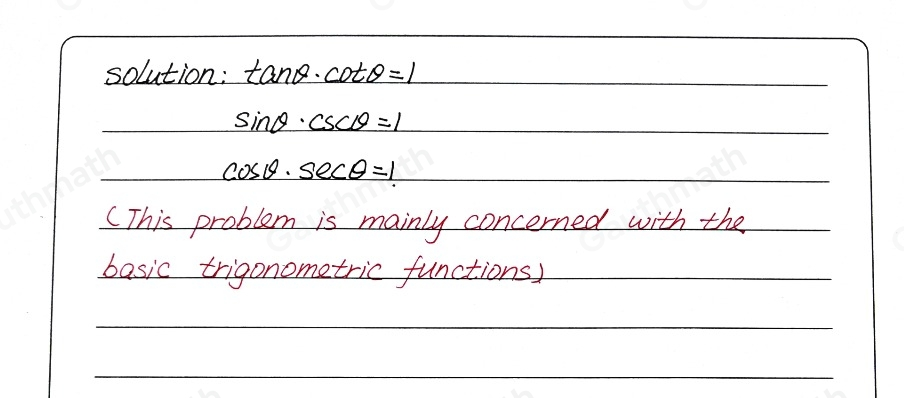 solution: tanθ·cotθ=1
sinθ·cscθ=1
cosθ·secθ=1.
(This problem is mainly concerned with the
basic trigonometric functions)